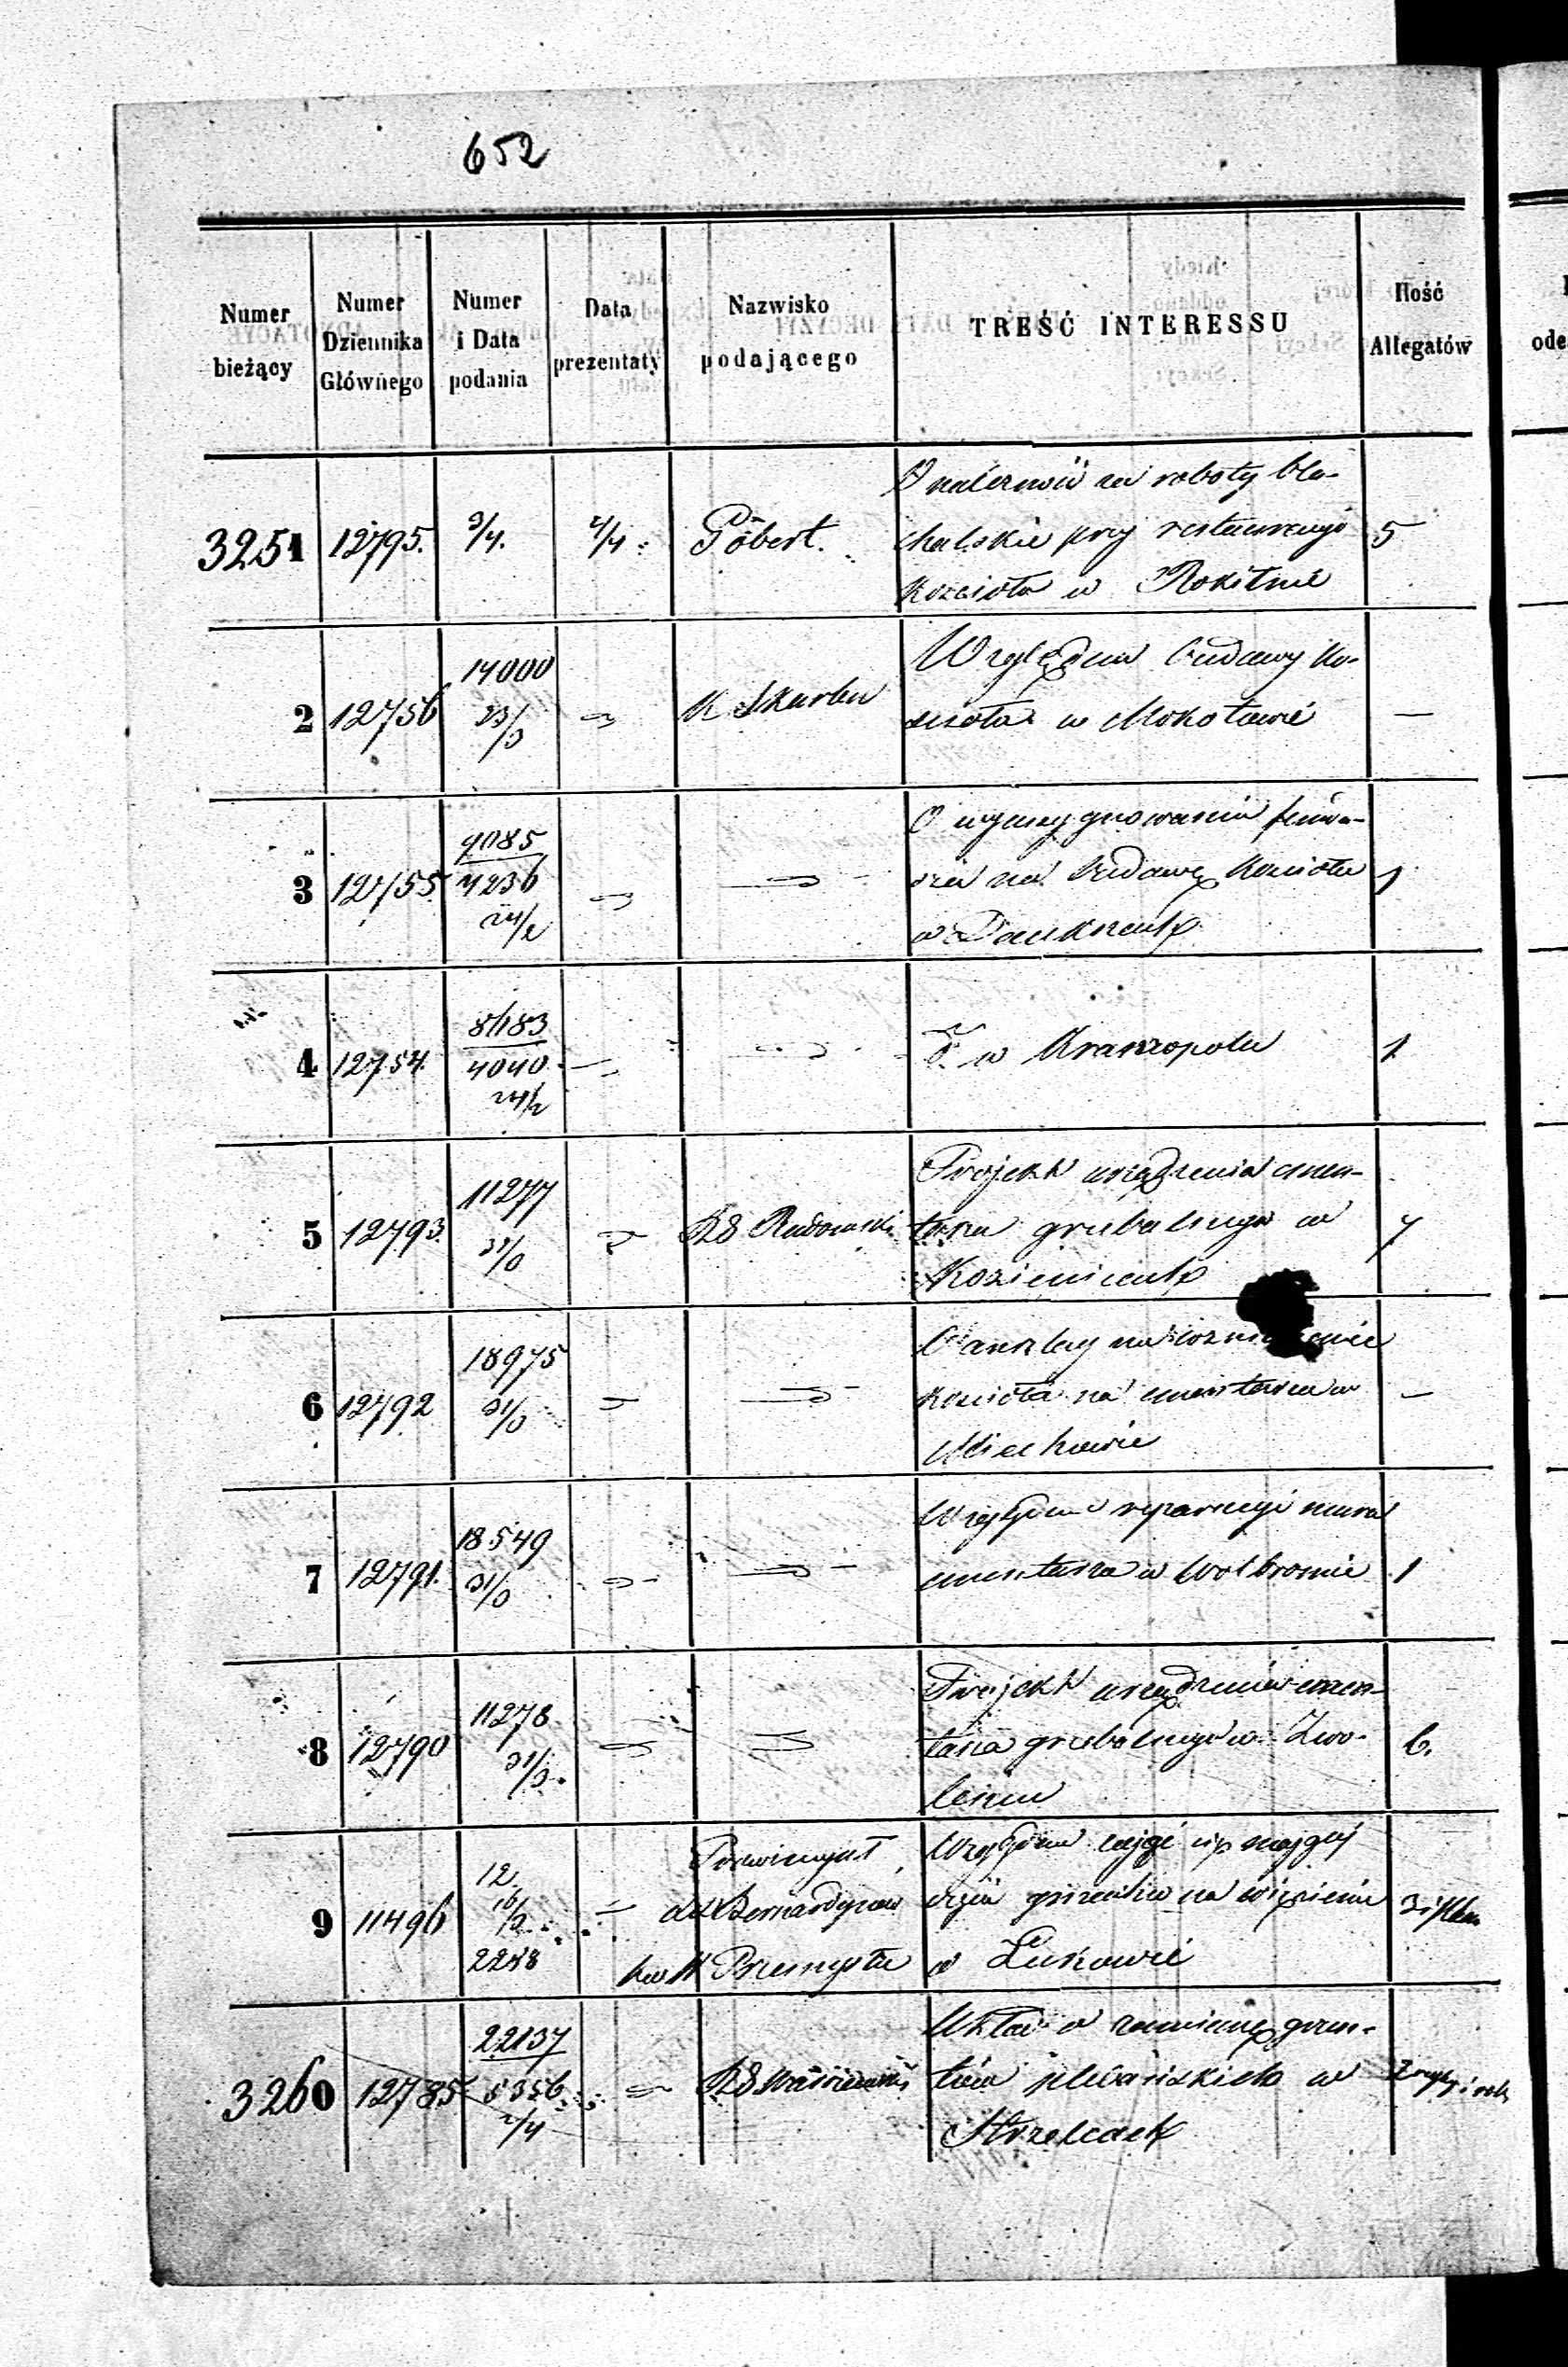 652
Numer bieżący
Numer Dziennika Głównego
Numer i Data podania
Data prezentaty
Nazwisko podającego
TREŚĆ INTERESSU
Ilość Allegatów
3251 12795. 3/4. 2/4 Göbert. O należność za roboty bla-
charskie przy restauracyi 5
Kościoła w Rokitnie
2 12756 14000 23/3 K Skarbu Względem budowy Ko-
ścioła w Mokotowie —
3 12755 9085 4236 24/2 O wyasygnowanie fundu-
szu na budowę Kościoła 1
w
4 12754. 8683 4040 24/2 w Krasnopolu 1
5 12793. 11277 31/3 RG Radomski Projekt urządzenia cmen-
tarza grzebalnego w 7
Kozienicach
6 12792 18975 31/3 na
kościoła na cmentarzu w —
Miechowie
7 12791. 18549 31/3 Względem reparacyi muru
cmentarza w Wolbromie 1
8 12790 11278 31/3 Projekt urządzenia cmen-
tarza grzebalnego w Zwo- 6.
leniu
9 11496 12 16/3 2248 Prowincyał Względem
Bernardynów na więzienie 3
w Łukowie
3260 12785 22137 5356 2/4 RG Warszawski Układ o zamianę grun-
tów plebańskich w
Strzelcach